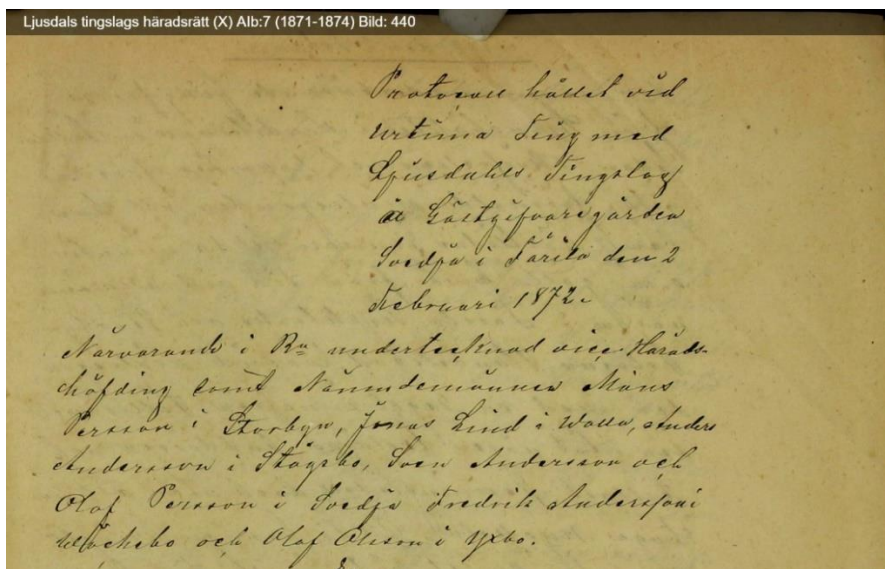 Ljusdals tingslags häradsrätt (X) Alb:7 (1871-1874) Bild: 440
Protocoll hållet vid
urtima Ting med
Ljusdahls Tingslag
å Gästgifvaregården
Svedja i Färila den 2
Februari 1872.
Närvarande i Rn undertecknad vice Härads-
höfding samt Nämndemännen Måns
Persson i Storbyn, Jonas Lind i Walla, Anders
Andersson i Stägsbo, Sven Andersson och
Olof Persson i Svedja Fredrik Andersson i
och Olof Olsson i Yxbo.